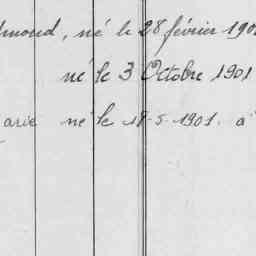 dmond, né le 28 février 190
né le 3 Octobre 1901
arie né le 18-5-1901. à